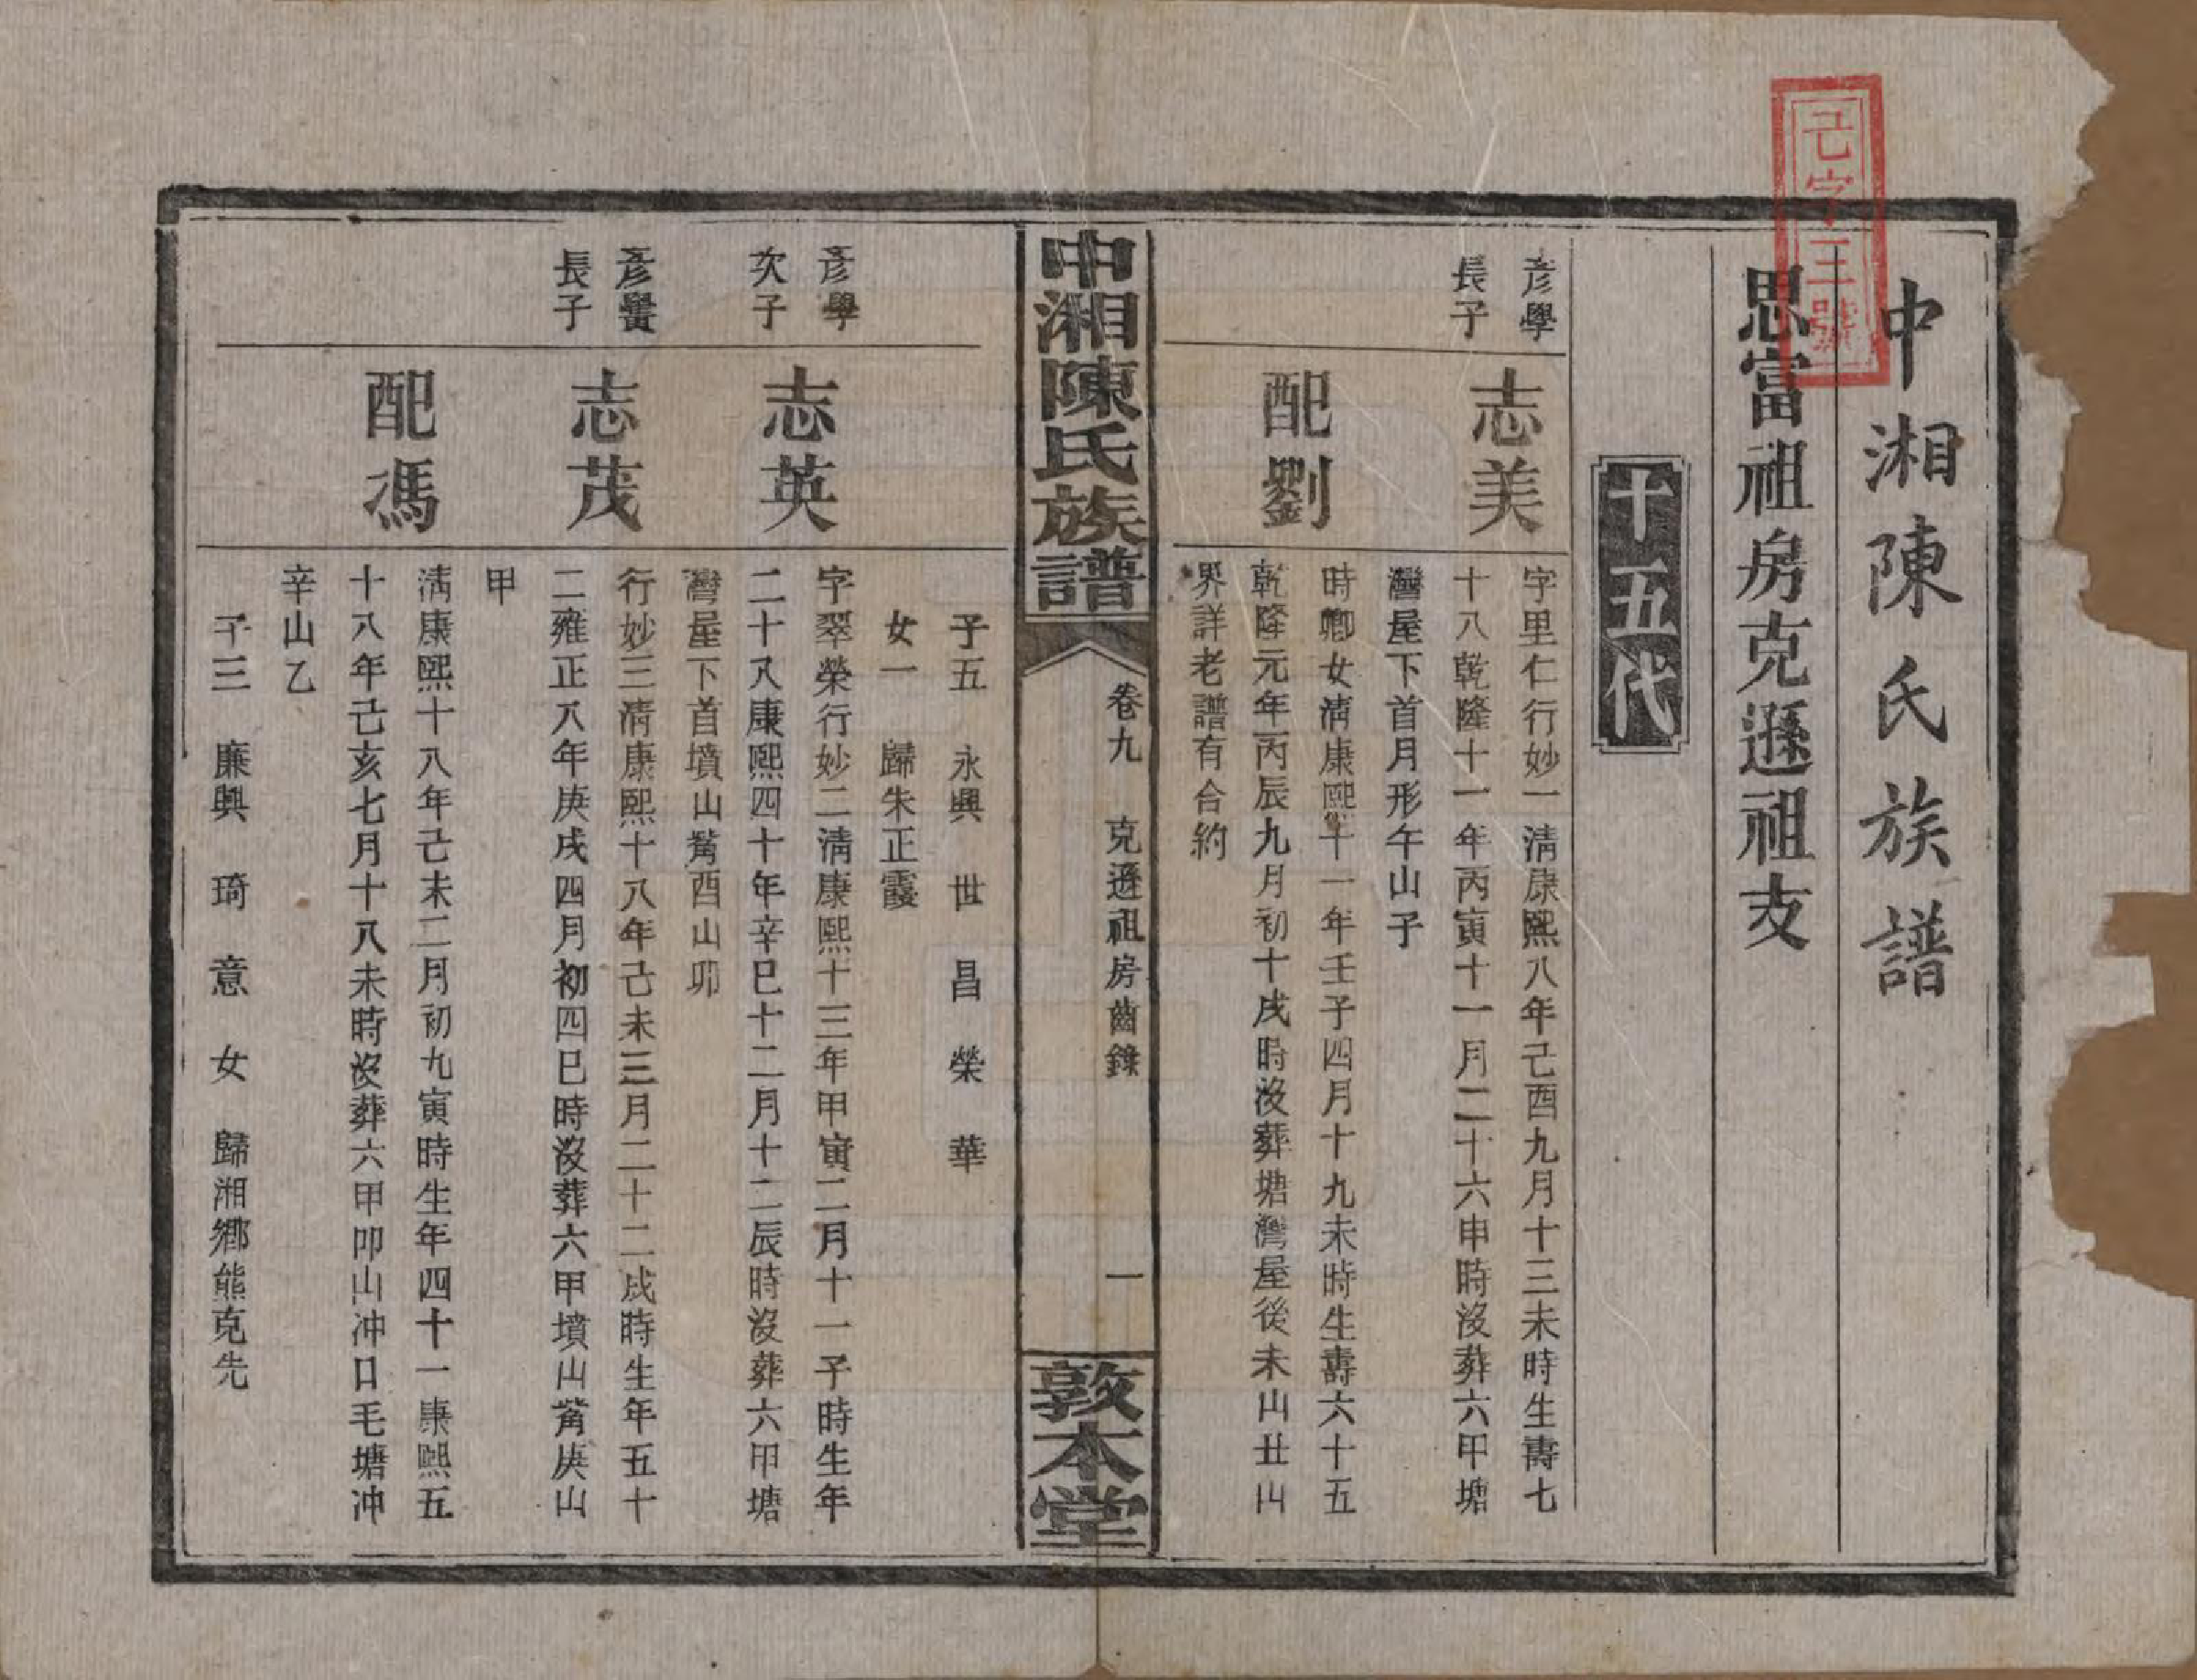 己字三號
中湘陳氏族譜
思富祖房克遜祖支
十五代
彥學
長子
志美
字里仁行妙一清康熙八年己酉九月十三未時生壽七
十八乾隆十一年丙寅十一月二十六申時沒葬六甲塘
灣屋下首月形午山子
配劉
時卿女清康熙十一年壬子四月十九未時生壽六十五
乾隆元年丙辰九月初十戌時沒葬塘灣屋後未山丑山
界詳老譜有合約
中湘陳氏族譜
卷九 克遜祖房齒錄
一
敦本堂
子五 永興 世 昌 榮 華
女一 歸朱正霞
彥學
次子
志英
字翠榮行妙二清康熙十三年甲寅二月十一子時生年
二十八康熙四十年辛巳十二月十二辰時沒葬六甲塘
灣屋下首墳山觜酉山卯
彥譽
長子
志茂
行妙三清康熙十八年己未三月二十二戌時生年五十
二雍正八年庚戌四月初四巳時沒葬六甲墳山觜庚山
甲
配馮
清康熙十八年己未二月初九寅時生年四十一康熙五
十八年己亥七月十八未時沒葬六甲卯山沖口毛塘沖
辛山乙
子三 廉興 琦 意 女 歸湘鄉熊克先